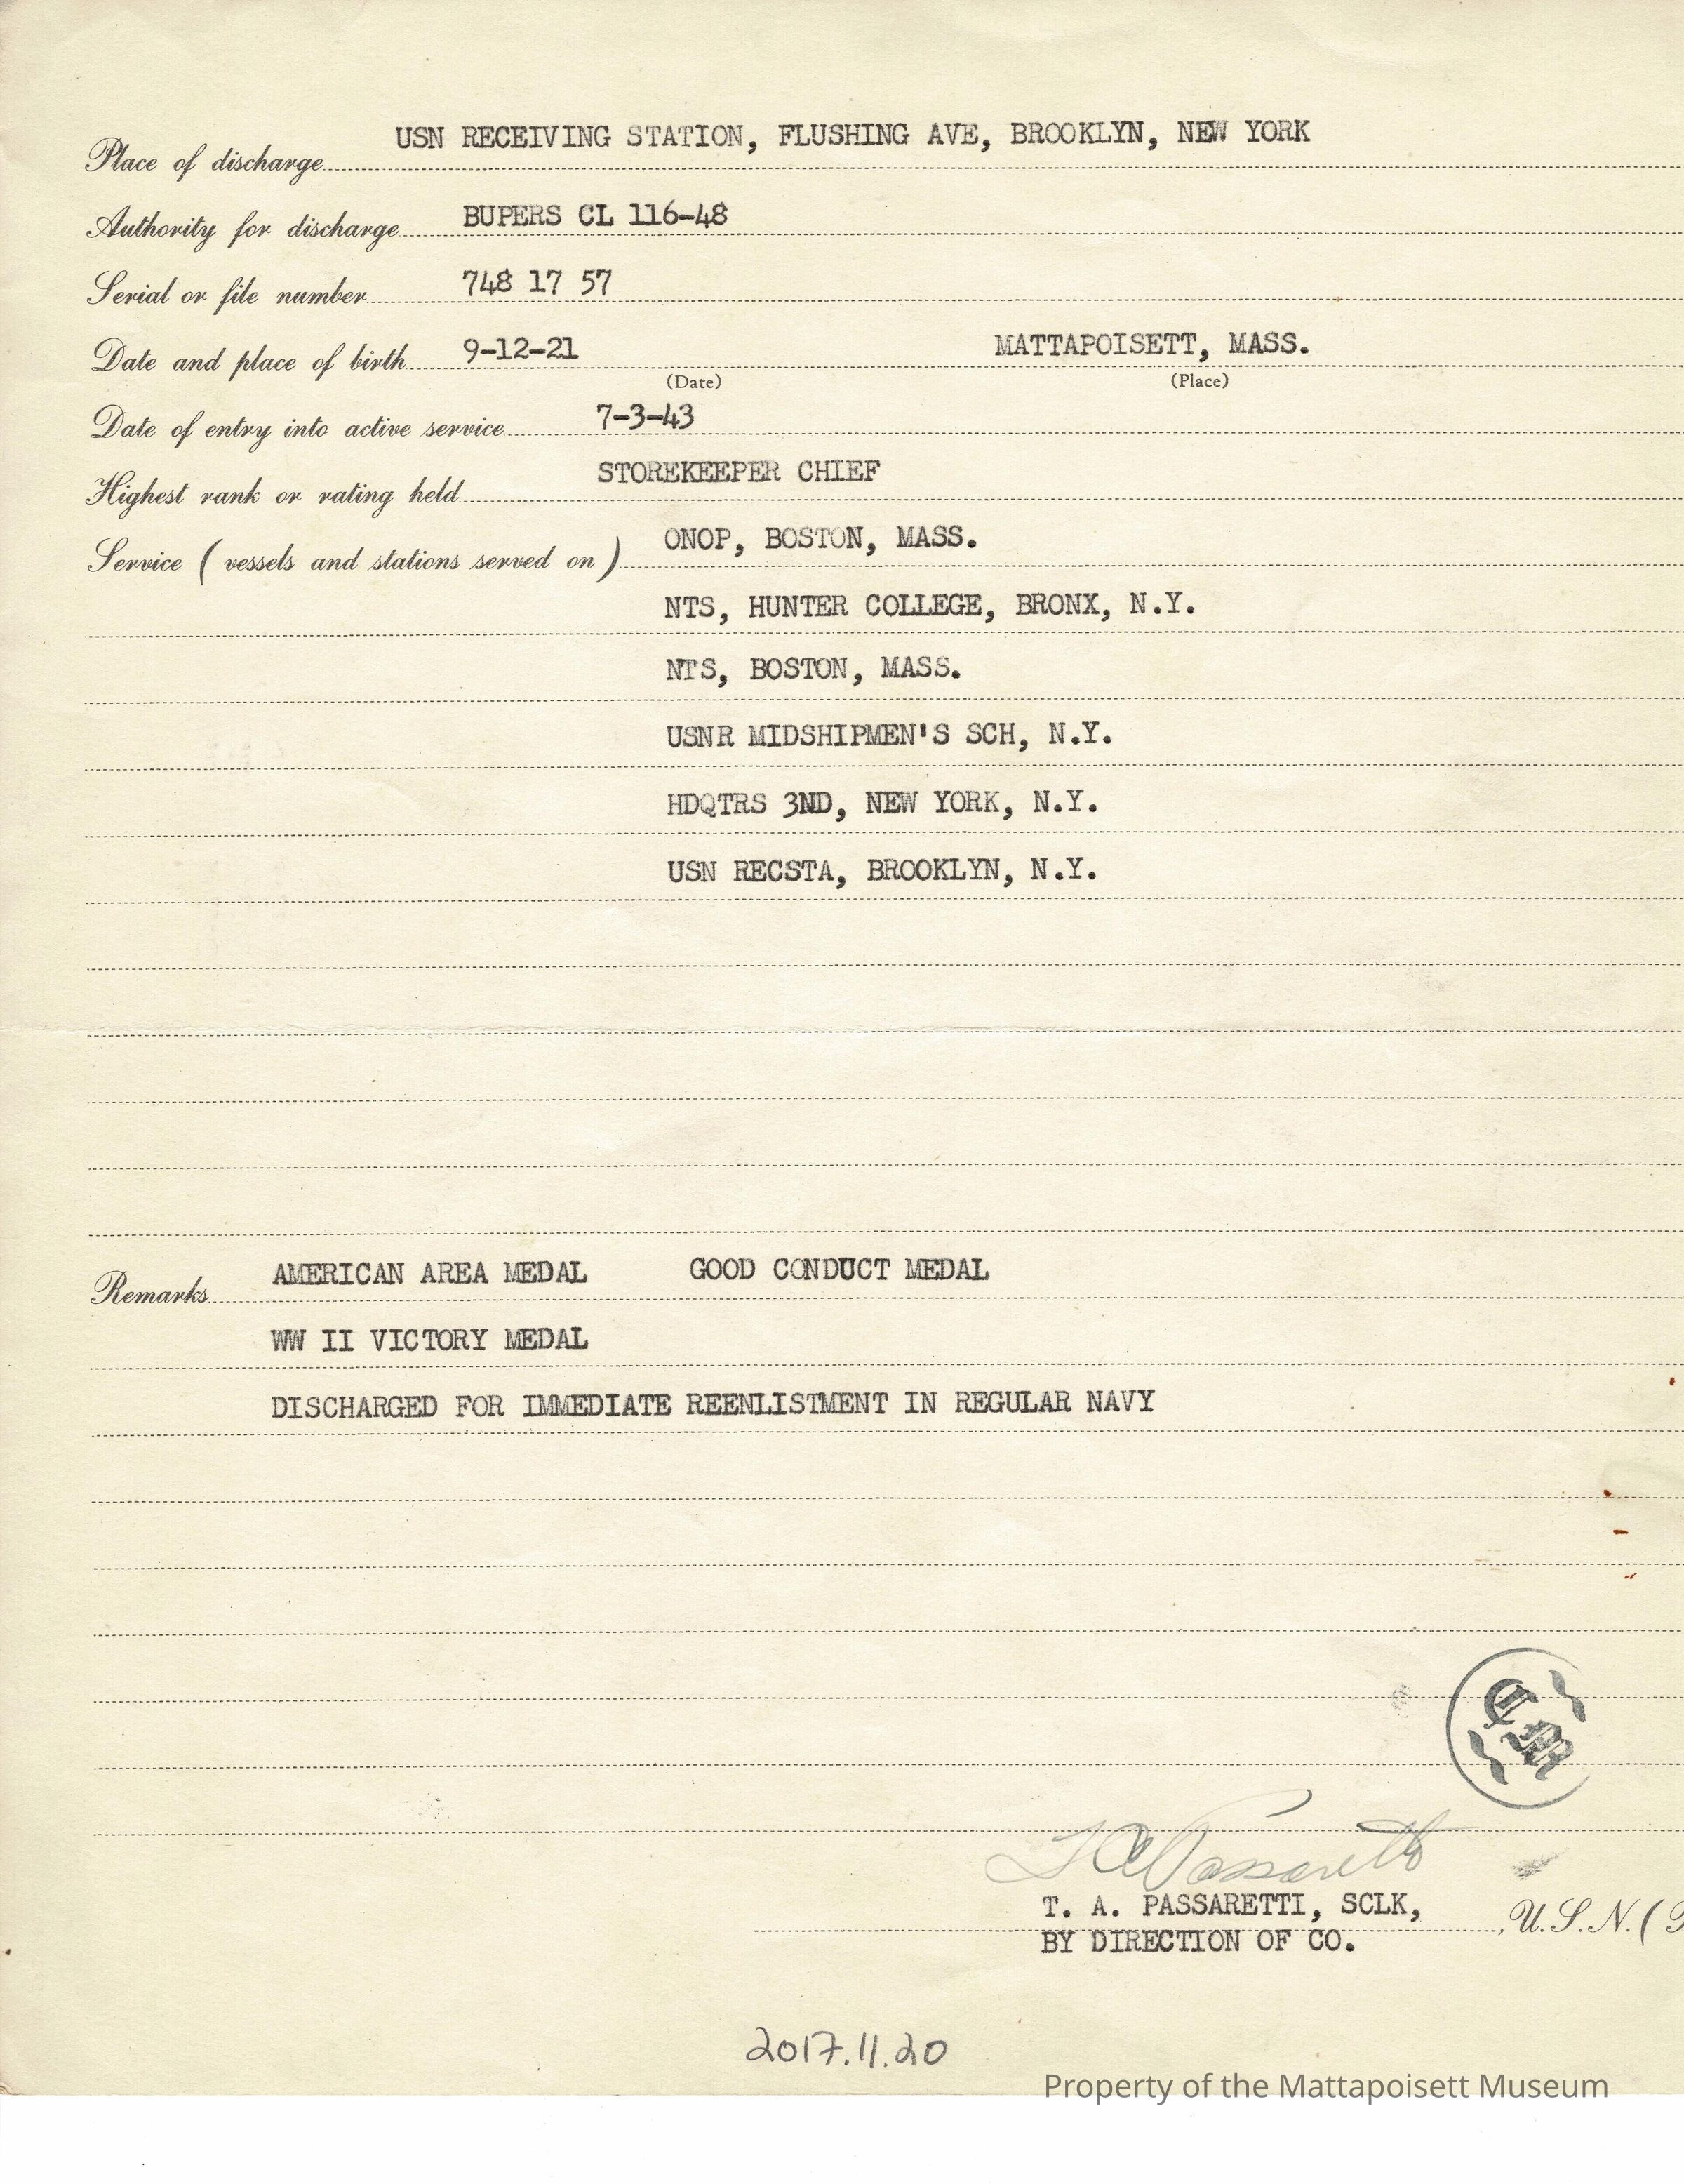 Place of discharge USN RECEIVING STATION, FLUSHING AVE, BROOKLYN, NEW YORK
Authority for discharge BUPERS CL 116-48
Serial or file number 748 17 57
Date and place of birth 9-12-21 MATTAPOISETT, MASS.
(Date) (Place)
Date of entry into active service 7-3-43
Highest rank or rating held STOREKEEPER CHIEF
Service ( vessels and stations served on ) ONOP, BOSTON, MASS.
NTS, HUNTER COLLEGE, BRONX, N.Y.
NTS, BOSTON, MASS.
USNR MIDSHIPMEN'S SCH, N.Y.
HDQTRS 3ND, NEW YORK, N.Y.
USN RECSTA, BROOKLYN, N.Y.
Remarks AMERICAN AREA MEDAL GOOD CONDUCT MEDAL
WW II VICTORY MEDAL
DISCHARGED FOR IMMEDIATE REENLISTMENT IN REGULAR NAVY
C M
T A Passaretti
T. A. PASSARETTI, SCLK, , U.S.N. (
BY DIRECTION OF CO.
2017.11.20
Property of the Mattapoisett Museum